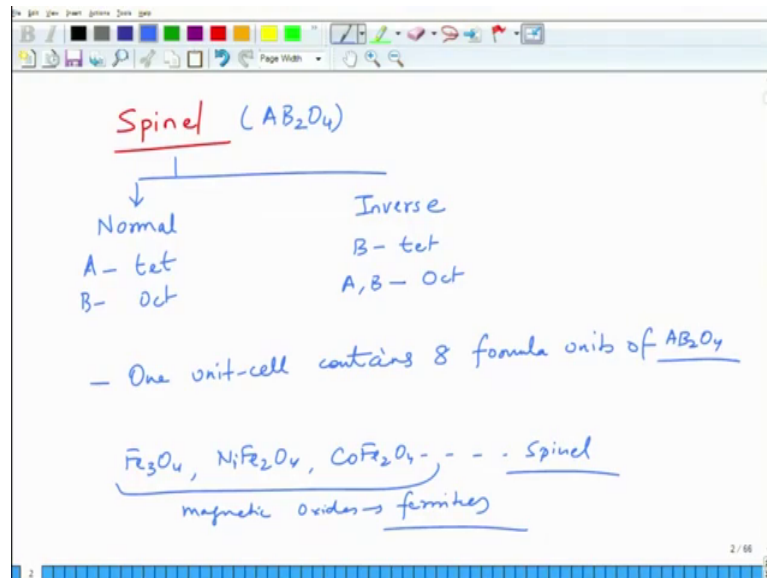 File Edit View Insert Actions Tools Help
B I
Page Width
Spinel (AB₂O₄)
Normal
Inverse
A - tet
B - tet
B- Oct
A, B - Oct
- One unit-cell contains 8 formula units of AB₂O₄
Fe₃O₄, NiFe₂O₄, CoFe₂O₄ - - - . Spinel
magnetic oxides → ferrites
2 / 66
2